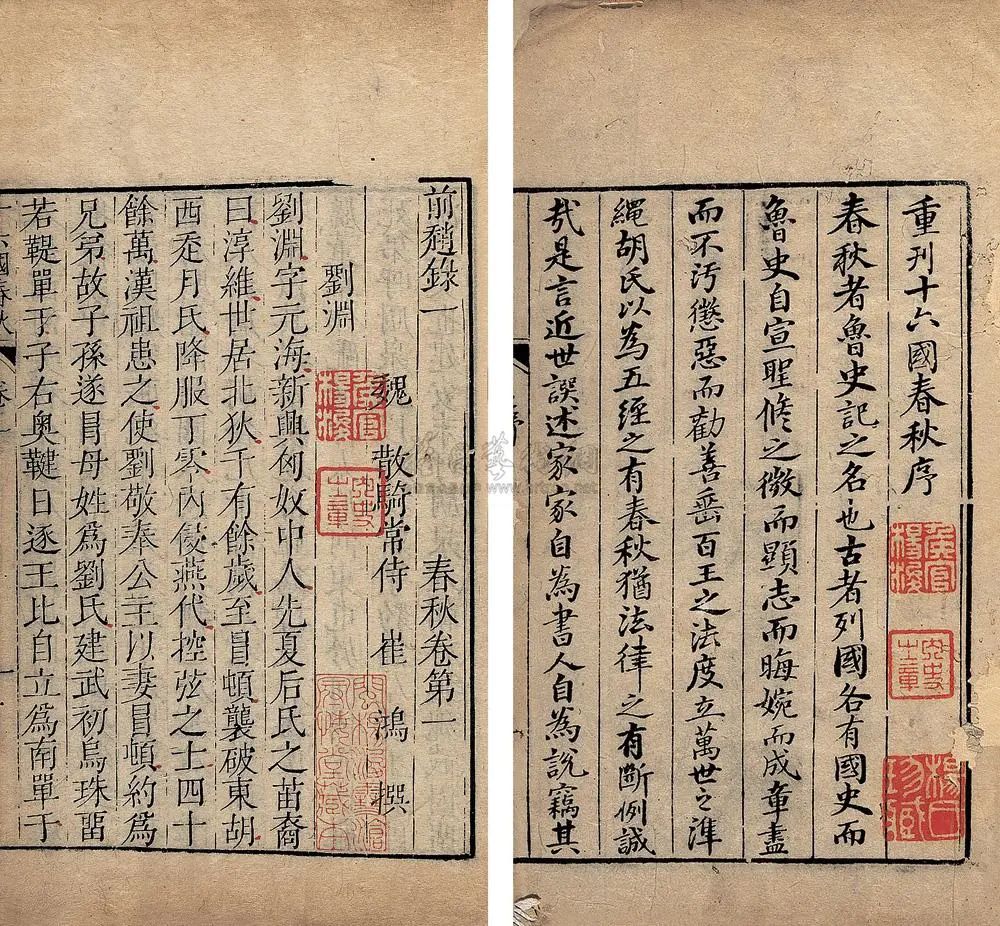 重刊十六國春秋序
春秋者魯史記之名也古者列國各有國史而
魯史自宣聖修之微而顯志而晦婉而成章盡
而不汚懲惡而勸善垂百王之法度立萬世之準
繩胡氏以為五經之有春秋猶法律之有斷例誠
哉是言近世誤述家家自為書人自為說竊其
侯官楊浚
內史之章
楊氏珍藏
前趙錄一 春秋卷第一
魏 散騎常侍 崔 鴻 撰
劉淵
劉淵字元海新興匈奴中人先夏后氏之苗裔
曰淳維世居北狄千有餘歲至冒頓襲破東胡
西走月氏降服丁零內侵燕代控弦之士四十
餘萬漢祖患之使劉敬奉公主以妻冒頓約為
兄弟故子孫遂冒母姓為劉氏建武初烏珠留
若鞮單于子右奧鞬日逐王比自立爲南單于
侯官楊浚